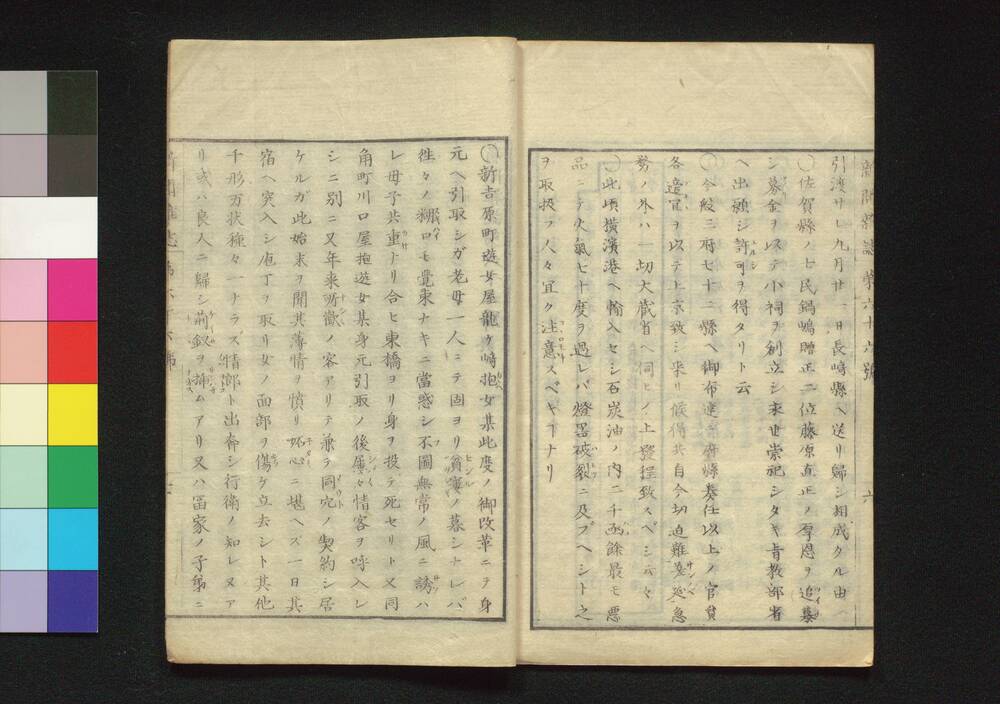 新聞雜誌第六十六號 六
引渡サレ九月廿一日長崎縣ヘ送リ歸シ相成タル由
○佐賀縣ノ士民鍋嶋贈正二位藤原直正ノ厚恩ヲ追慕
シ募金ヲ以テ小祠ヲ創立シ永世崇祀シタキ旨教部省
ヘ出願シ許可ヲ得タリト云
○今般三府七十二縣ヘ御布達 府縣奏任以上ノ官員
各造官ヲ以テ上京致シ來リ候得共自今切迫難差延急
務ノ外ハ一切大藏省ヘ伺ヒノ上發程致スベシ云々
○此頃橫濱港ヘ輸入セシ石炭油ノ内二千函餘最モ惡
品ニテ火氣七十度ヲ過レバ燈器破裂ニ及ブヘシト之
ヲ取扱フ人々宜ク注意スベキヿナリ
○新吉原町遊女屋龍ケ崎抱女某此度ノ御改革ニテ身
元ヘ引取シガ老母一人ニテ固ヨリ貧窶ノ暮シナレバ
往々ノ糊口モ覺束ナキニ當惑シ不圖無常ノ風ニ誘ハ
レ母子共重トリ合ヒ東橋ヨリ身ヲ投テ死セリト又同
角町川口屋抱遊女某身元引取ノ後屢々情客ヲ呼入レ
シニ別ニ又年來所歡ノ客アリテ兼テ同穴ノ契約シ居
ケルガ此始末ヲ聞其薄情ヲ憤リ妬心ニ堪ヘズ一日其
宿ヘ突入シ庖丁ヲ取リ女ノ面部ヲ傷ケ立去シト其他
千形万狀種々一ナラズ情郎ト出奔シ行衛ノ知レヌア
リ或ハ良人ニ歸シ荊釵ヲ挿ムアリ又ハ冨家ノ子弟ニ
新聞雜誌